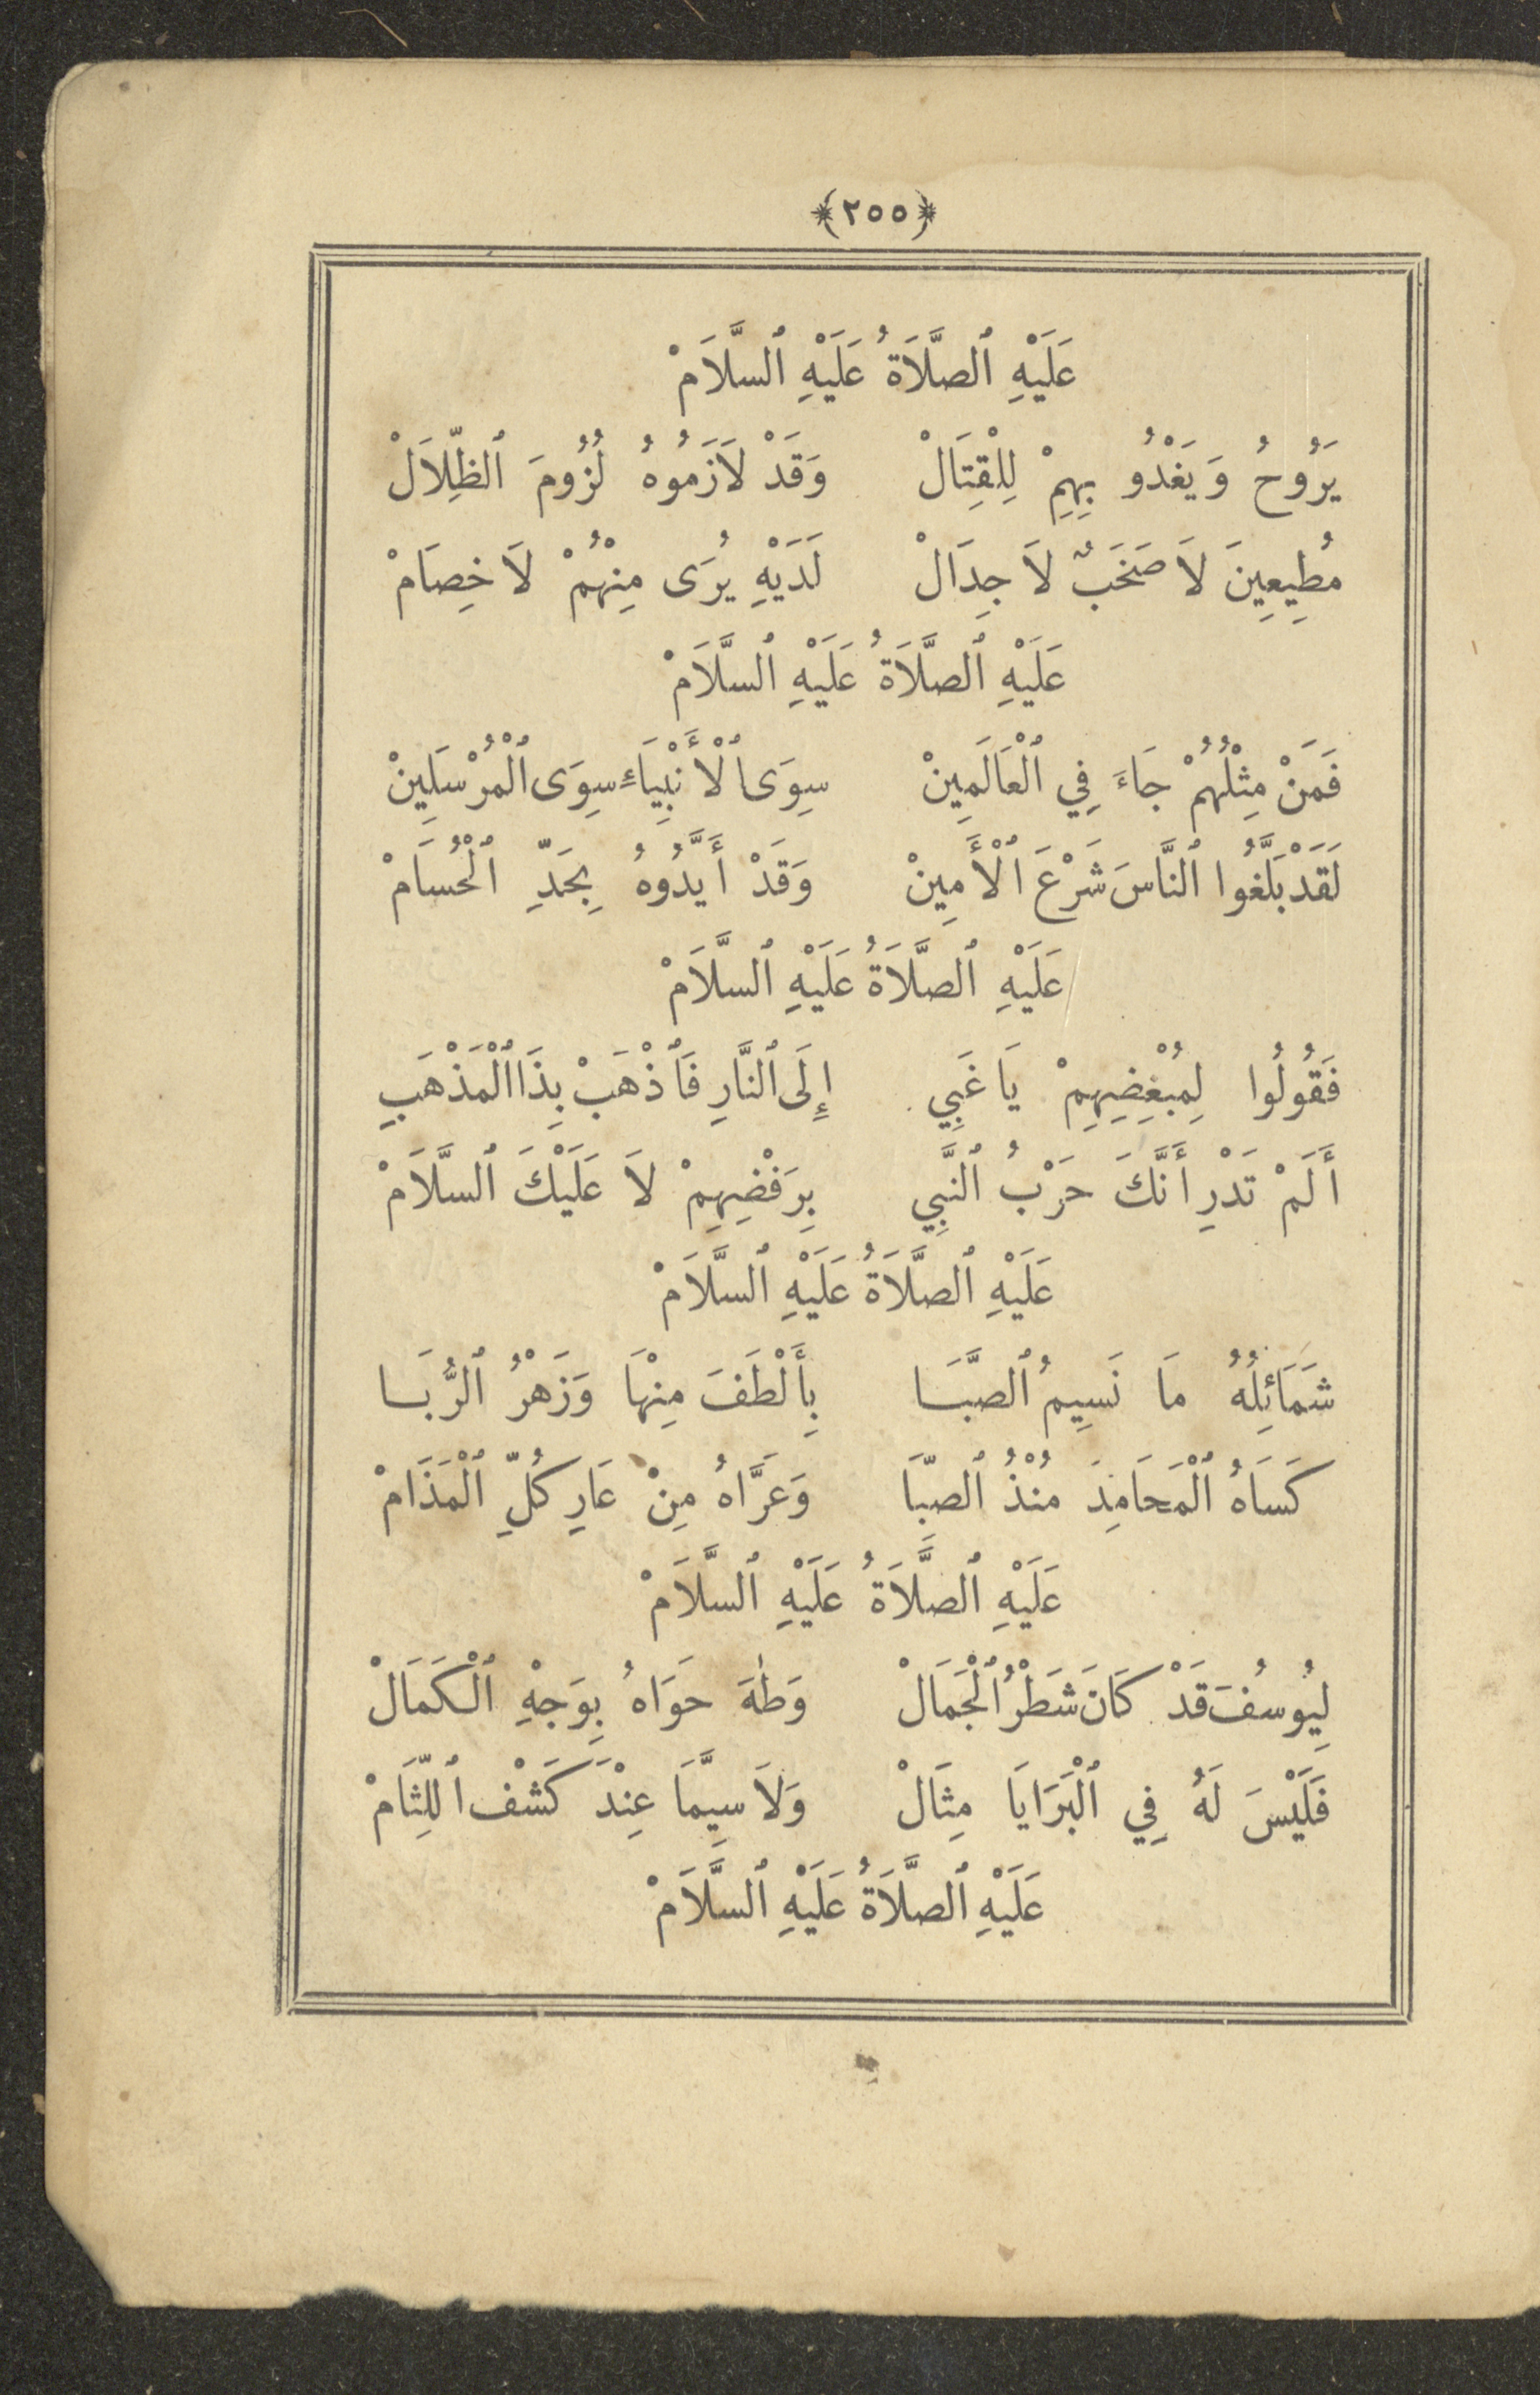 ﴿٢٥٥﴾
عَلَيْهِ ٱلصَّلَاَةُ عَلَيْهِ ٱلسَّلَاَمْ
يَرُوحُ وَيَغْدُو بِهِمْ لِلْقِتَالْ وَقَدْ لاَزَمُوهُ لُزُومَ ٱلظِّلاَلْ
مُطِيعِينَ لاَ صَخَبٌ لاَ جِدَالْ لَدَيْهِ يُرَى مِنْهُمْ لاَ خِصَامْ
عَلَيْهِ ٱلصَّلَاَةُ عَلَيْهِ ٱلسَّلَاَمْ
فَمَنْ مِثْلُهُمْ جَاءَ فِي ٱلْعَالَمِينْ سِوَى ٱلْأَنْبِيَاءِ سِوَى ٱلْمُرْسَلِينْ
لَقَدْ بَلَّغُوا ٱلنَّاسَ شَرْعَ ٱلْأَمِينْ وَقَدْ أَيَّدُوهُ بِحَدِّ ٱلْحُسَامْ
عَلَيْهِ ٱلصَّلَاَةُ عَلَيْهِ ٱلسَّلَاَمْ
فَقُولُوا لِمُبْغِضِيهِمْ يَا غَبِي إِلَى ٱلنَّارِ فَٱذْهَبْ بِذَا ٱلْمَذْهَبِ
أَلَمْ تَدْرِ أَنَّكَ حَرْبُ ٱلنَّبِي بِرَفْضِهِمْ لاَ عَلَيْكَ ٱلسَّلَاَمْ
عَلَيْهِ ٱلصَّلَاَةُ عَلَيْهِ ٱلسَّلَاَمْ
شَمَائِلُهُ مَا نَسِيمُ ٱلصَّبَا بِأَلْطَفَ مِنْهَا وَزَهْرُ ٱلرُّبَا
كَسَاهُ ٱلْمَحَامِدَ مُنْذُ ٱلصِّبَا وَعَرَّاهُ مِنْ عَارِ كُلِّ ٱلْمَذَامْ
عَلَيْهِ ٱلصَّلَاَةُ عَلَيْهِ ٱلسَّلَاَمْ
لِيُوسُفَ قَدْ كَانَ شَطْرُ ٱلْجَمَالْ وَطٰهَ حَوَاهُ بِوَجْهِ ٱلْكَمَالْ
فَلَيْسَ لَهُ فِي ٱلْبَرَايَا مِثَالْ وَلاَ سِيَّمَا عِنْدَ كَشْفِ ٱللِّثَامْ
عَلَيْهِ ٱلصَّلَاَةُ عَلَيْهِ ٱلسَّلَاَمْ